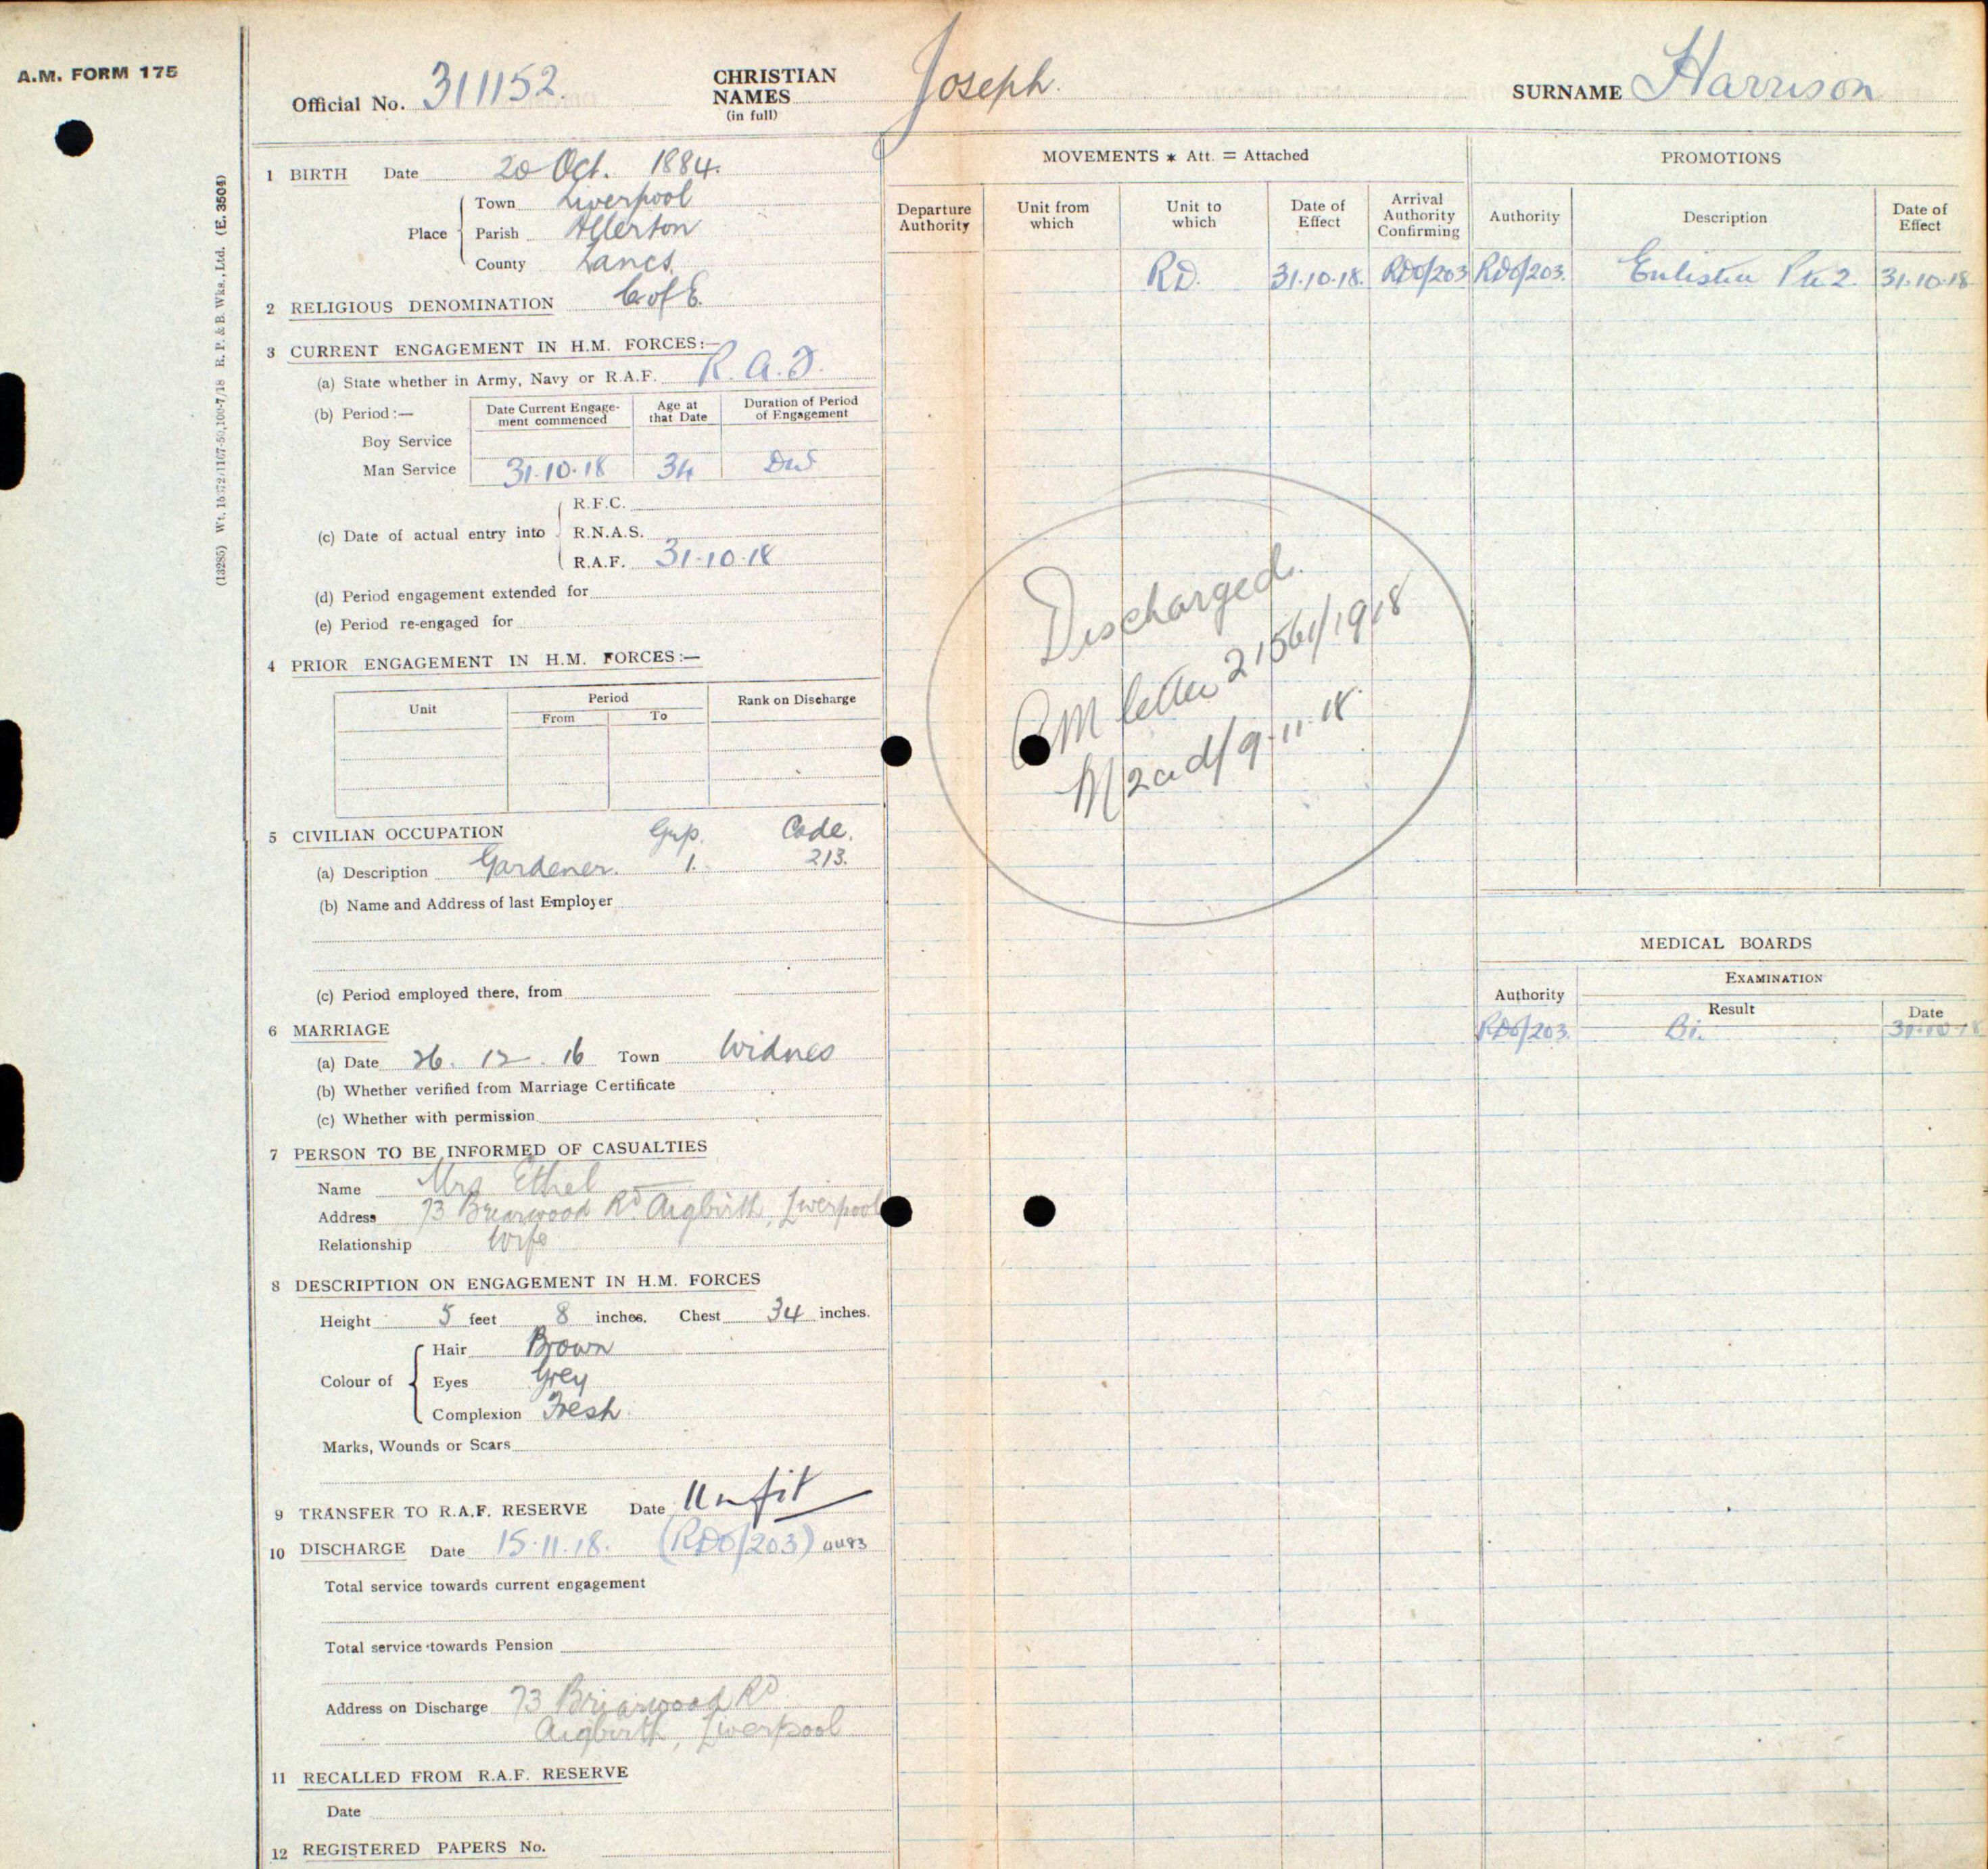 A.M. FORM 175
(13285) Wt. 15572/1167-50,100-7/18 R. P. & B. Wks., Ltd. (E. 3504)
Official No. 311152. CHRISTIAN NAMES (in full) Joseph. SURNAME Harrison
1 BIRTH Date 20 Oct. 1884.
Place Town Liverpool
Parish Allerton
County Lancs.
2 RELIGIOUS DENOMINATION C of E.
3 CURRENT ENGAGEMENT IN H.M. FORCES:—
(a) State whether in Army, Navy or R.A.F. R.A.F.
(b) Period:— Date Current Engagement commenced Age at that Date Duration of Period of Engagement
Boy Service
Man Service 31.10.18 34 DW
(c) Date of actual entry into R.F.C.
R.N.A.S.
R.A.F. 31.10.18
(d) Period engagement extended for
(e) Period re-engaged for
4 PRIOR ENGAGEMENT IN H.M. FORCES:—
Unit Period Rank on Discharge
From To
5 CIVILIAN OCCUPATION Grp. Code.
(a) Description Gardener. 1. 213.
(b) Name and Address of last Employer
(c) Period employed there, from
6 MARRIAGE
(a) Date 26.12.16 Town Widnes
(b) Whether verified from Marriage Certificate
(c) Whether with permission
7 PERSON TO BE INFORMED OF CASUALTIES
Name Mrs Ethel —
Address 73 Briarwood Rd. Aigbirth, Liverpool
Relationship Wife
8 DESCRIPTION ON ENGAGEMENT IN H.M. FORCES
Height 5 feet 8 inches. Chest 34 inches.
Colour of Hair Brown
Eyes Grey
Complexion Fresh
Marks, Wounds or Scars
9 TRANSFER TO R.A.F. RESERVE Date Unfit
10 DISCHARGE Date 15.11.18. (RDO/203)
Total service towards current engagement
Total service towards Pension
Address on Discharge 73 Briarwood Rd
Aigbirth, Liverpool
11 RECALLED FROM R.A.F. RESERVE
Date
12 REGISTERED PAPERS No.
MOVEMENTS * Att. = Attached
Departure Authority Unit from which Unit to which Date of Effect Arrival Authority Confirming
RD. 31.10.18. RDO/203
Discharged.
AM letter 21561/1918
M2ad/9.11.18
PROMOTIONS
Authority Description Date of Effect
RDO/203. Enlisted Pte 2. 31.10.18
MEDICAL BOARDS
Authority EXAMINATION
Result Date
RDO/203. Bi. 31.10.18